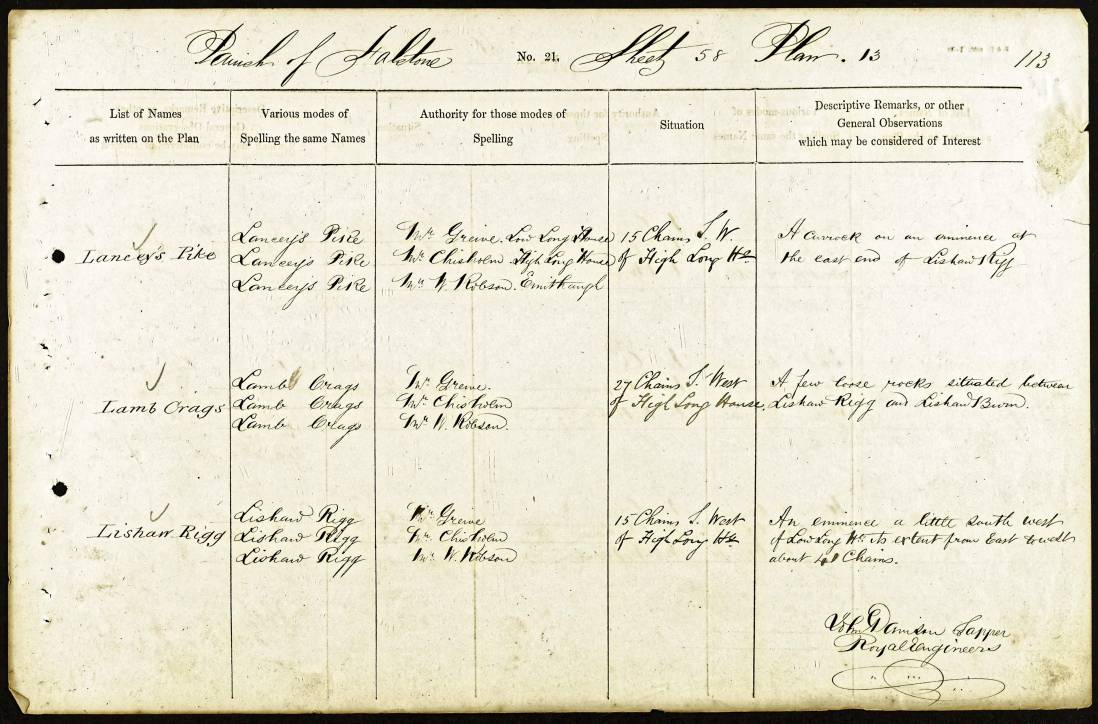 Parish of Falstone No. 21. Sheet 58 Plan. 13 113
List of Names
as written on the Plan
Various modes of
Spelling the same Names
Authority for those modes of
Spelling
Situation
Descriptive Remarks, or other
General Observations
which may be considered of Interest
Lancey's Pike
Lancey's Pike
Lancey's Pike
Lancey's Pike
Mr. Greive. Low Long House
Mr. Chisholm. High Long House
Mr. W. Robson. Emithaugh
15 Chains S. W
of High Long Hse
A currock on an eminence at
the east end of Lishaw Rigg
Lamb Crags
Lamb Crags
Lamb Crags
Lamb Crags
Mr. Greive.
Mr. Chisholm
Mr. W. Robson.
27 Chains S. West
of High Long House.
A few loose rocks situated between
Lishaw Rigg and Lishaw Burn.
Lishaw Rigg
Lishaw Rigg
Lishaw Rigg
Lishaw Rigg
Mr. Greive
Mr. Chisholm
Mr. W. Robson
15 Chains S. West
of High Long Hse.
An eminence a little south west
of Low Long Hse its extent from East to west
about Chains.
John Damson Sapper
Royal Engineers